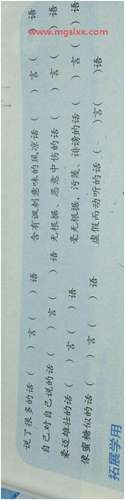 www.mgslxx.com
说了很多的话（　）言（　）语　含有讽刺意味的风凉话（　）言（　）语
自己对自己说的话（　）言（　）语　无根据、恶意中伤的话（　）言（　）语
豪迈雄壮的话（　）言（　）语　毫无根据，污蔑、诽谤的话（　）言（　）语
像蜜糖似的话（　）言（　）语　虚假而动听的话（　）言（　）语
拓展学用